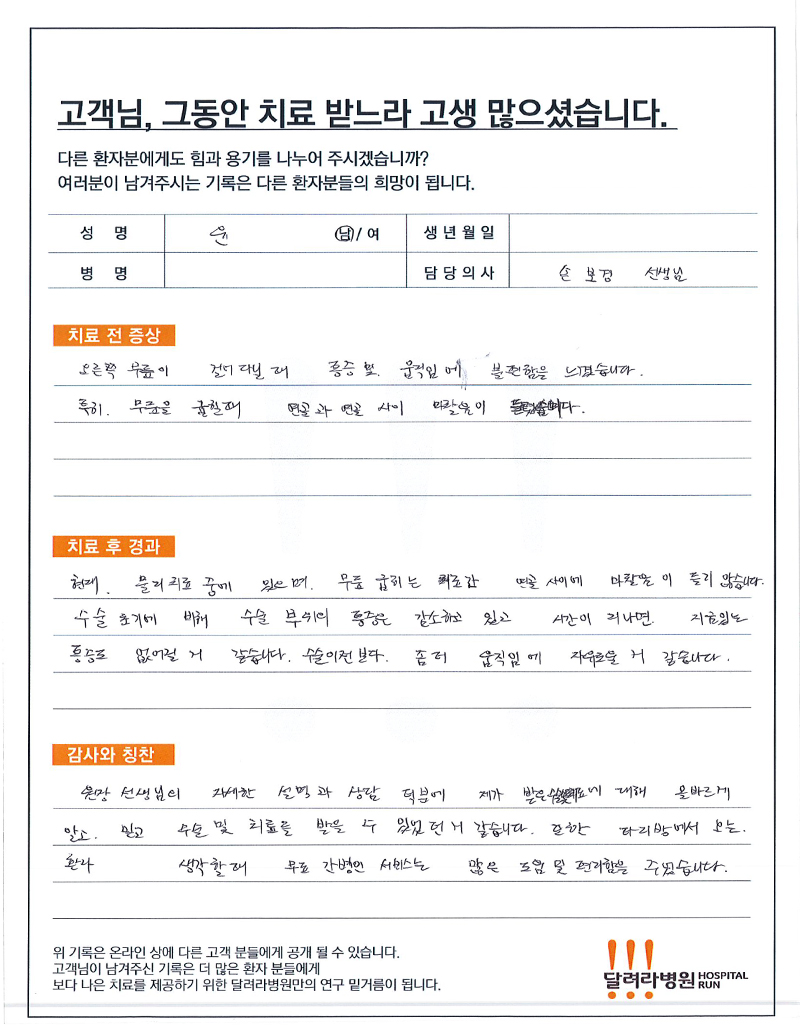 고객님, 그동안 치료 받느라 고생 많으셨습니다.
다른 환자분에게도 힘과 용기를 나누어 주시겠습니까?
여러분이 남겨주시는 기록은 다른 환자분들의 희망이 됩니다.
성 명 윤 남/여 생년월일
병 명 담당의사 손보경 선생님
치료 전 증상
오른쪽 무릎이 걸어 다닐 때 통증 및 움직임에 불편함을 느꼈습니다.
특히, 무릎을 굽힐때 연골과 연골 사이 마찰음이
치료 후 경과
현재, 물리치료 중에 있으며, 무릎 굽히는 치료간 연골 사이에 마찰음이 들리 않습니다.
수술 초기에 비해 수술 부위의 통증은 감소하고 있고 시간이 지나면, 지금있는
통증도 없어질 거 같습니다. 수술이전 보다, 좀 더 움직임에 자유로울 거 같습니다.
감사와 칭찬
원장 선생님의 자세한 설명과 상담 덕분에 제가 받은 대해 올바르게
알고, 믿고 수술 및 치료를 받을 수 있었던거 같습니다. 또한 다리방에서 오는,
환자 생각할때 무료 간병인 서비스는 많은 도움 및 편리함을 주었습니다.
위 기록은 온라인 상에 다른 고객 분들에게 공개 될 수 있습니다.
고객님이 남겨주신 기록은 더 많은 환자 분들에게
보다 나은 치료를 제공하기 위한 달려라병원만의 연구 밑거름이 됩니다.
달려라병원 HOSPITAL RUN